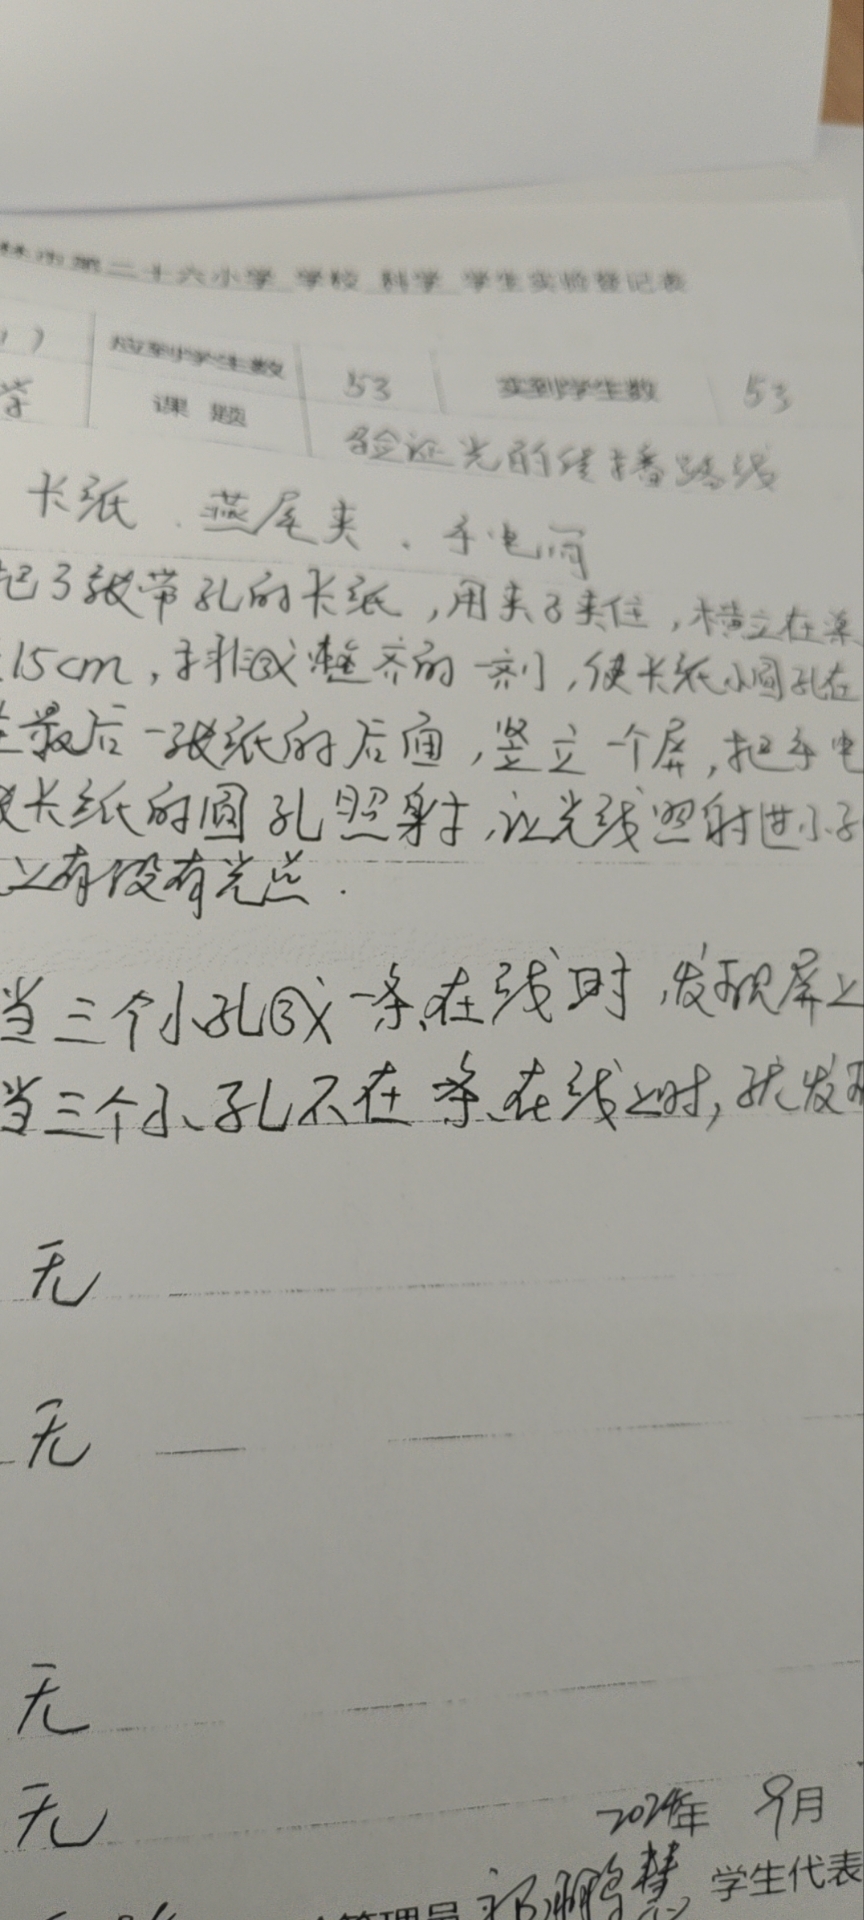 林市第二十六小学 学校 科学 学生实验登记表
应到学生数 53 实到学生数 53
学 课题 验证光的传播路线
卡纸、燕尾夹、手电筒
把3张带孔的卡纸,用夹子夹住,横立在桌
15cm,排成整齐的一列,使卡纸小圆孔在
在最后一张纸的后面,竖立一个屏,把手电
卡纸的圆孔照射,让光线照射进小孔
上有没有光点.
当三个小孔成一条直线时,发现屏上
当三个小孔不在一条直线上时,就发现
无
无
无
无
2024年 9月
管理员 学生代表